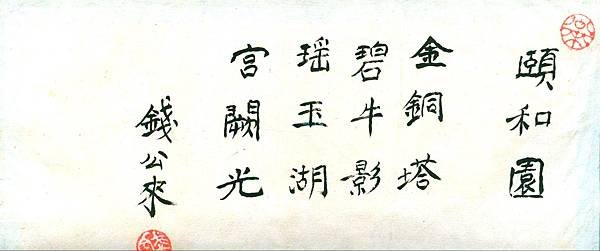 頤和園
金銅塔
碧牛影
瑶玉湖
宮闕光
錢公來